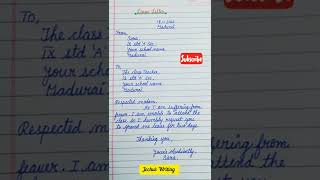 Leave Letter
Madurai
From
Rama,
IX std 'A' Sec,
Your school name
Madurai
Subscribe
To,
The class Teacher
IX std 'A' Sec
Your school name
Madurai
Respected madam,
As I am suffering from
feaver. I am unable to attend the
class. So I humbly request you
to grant me leave for two days.
Thanking you,
Yours obediently,
Rama.
Writing
To,
The class
IX std 'A'
Your sch
Madurai
Respected m
feaver. I am
ffering from
attend the